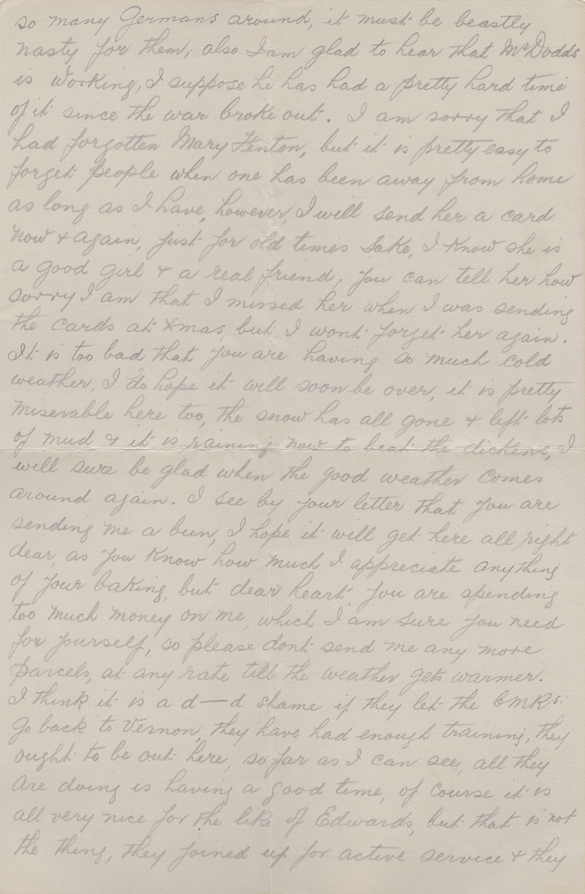 so many Germans around, it must be beastly
nasty for them, also I am glad to hear that McDodds
is working, I suppose he has had a pretty hard time
of it since the war broke out. I am sorry that I
had forgotten Mary Fenton, but it is pretty easy to
forget people when one has been away from home
as long as I have, however, I will send her a card
now & again, just for old times sake, I know she is
a good girl & a real friend, you can tell her how
sorry I am that I missed her when I was sending
the cards at Xmas, but I wont forget her again.
It is too bad that you are having so much cold
weather, I do hope it will soon be over, it is pretty
miserable here too, the snow has all gone & left lots
of mud & it is raining now to beat the dickens, I
will sure be glad when the good weather comes
around again. I see by your letter that you are
sending me a bun, I hope it will get here all right
dear, as you know how much I appreciate anything
of your baking, but dear heart you are spending
too much money on me, which I am sure you need
for yourself, so please dont send me any more
parcels, at any rate till the weather gets warmer.
I think it is a d—d shame if they let the CMRs.
go back to Vernon, they have had enough training, they
ought to be out here, so far as I can see, all they
are doing is having a good time, of course it is
all very nice for the like of Edwards, but that is not
the thing, they joined up for active service & they